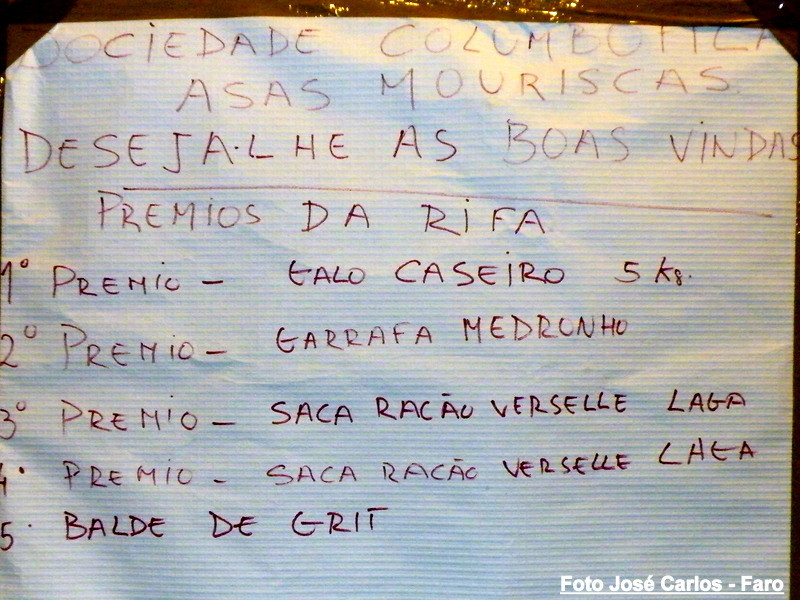 SOCIEDADE COLUMBOFILA
ASAS MOURISCAS.
DESEJA-LHE AS BOAS VINDAS
PREMIOS DA RIFA
1º PREMIO - GALO CASEIRO 5 Kg.
2º PREMIO - GARRAFA MEDRONHO
3º PREMIO - SACA RACÃO VERSELLE LAGA
4. PREMIO - SACA RACÃO VERSELLE LHEA
5. BALDE DE GRIT
Foto José Carlos - Faro